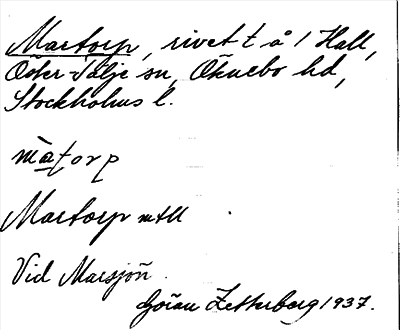 Martorp, rivet t å / Hall,
Öster-Tälje sn, Öknebo hd,
Stockholms l.
matorp
Martorp mtll
Vid Marsjön.
Göran Zetterberg 1937.